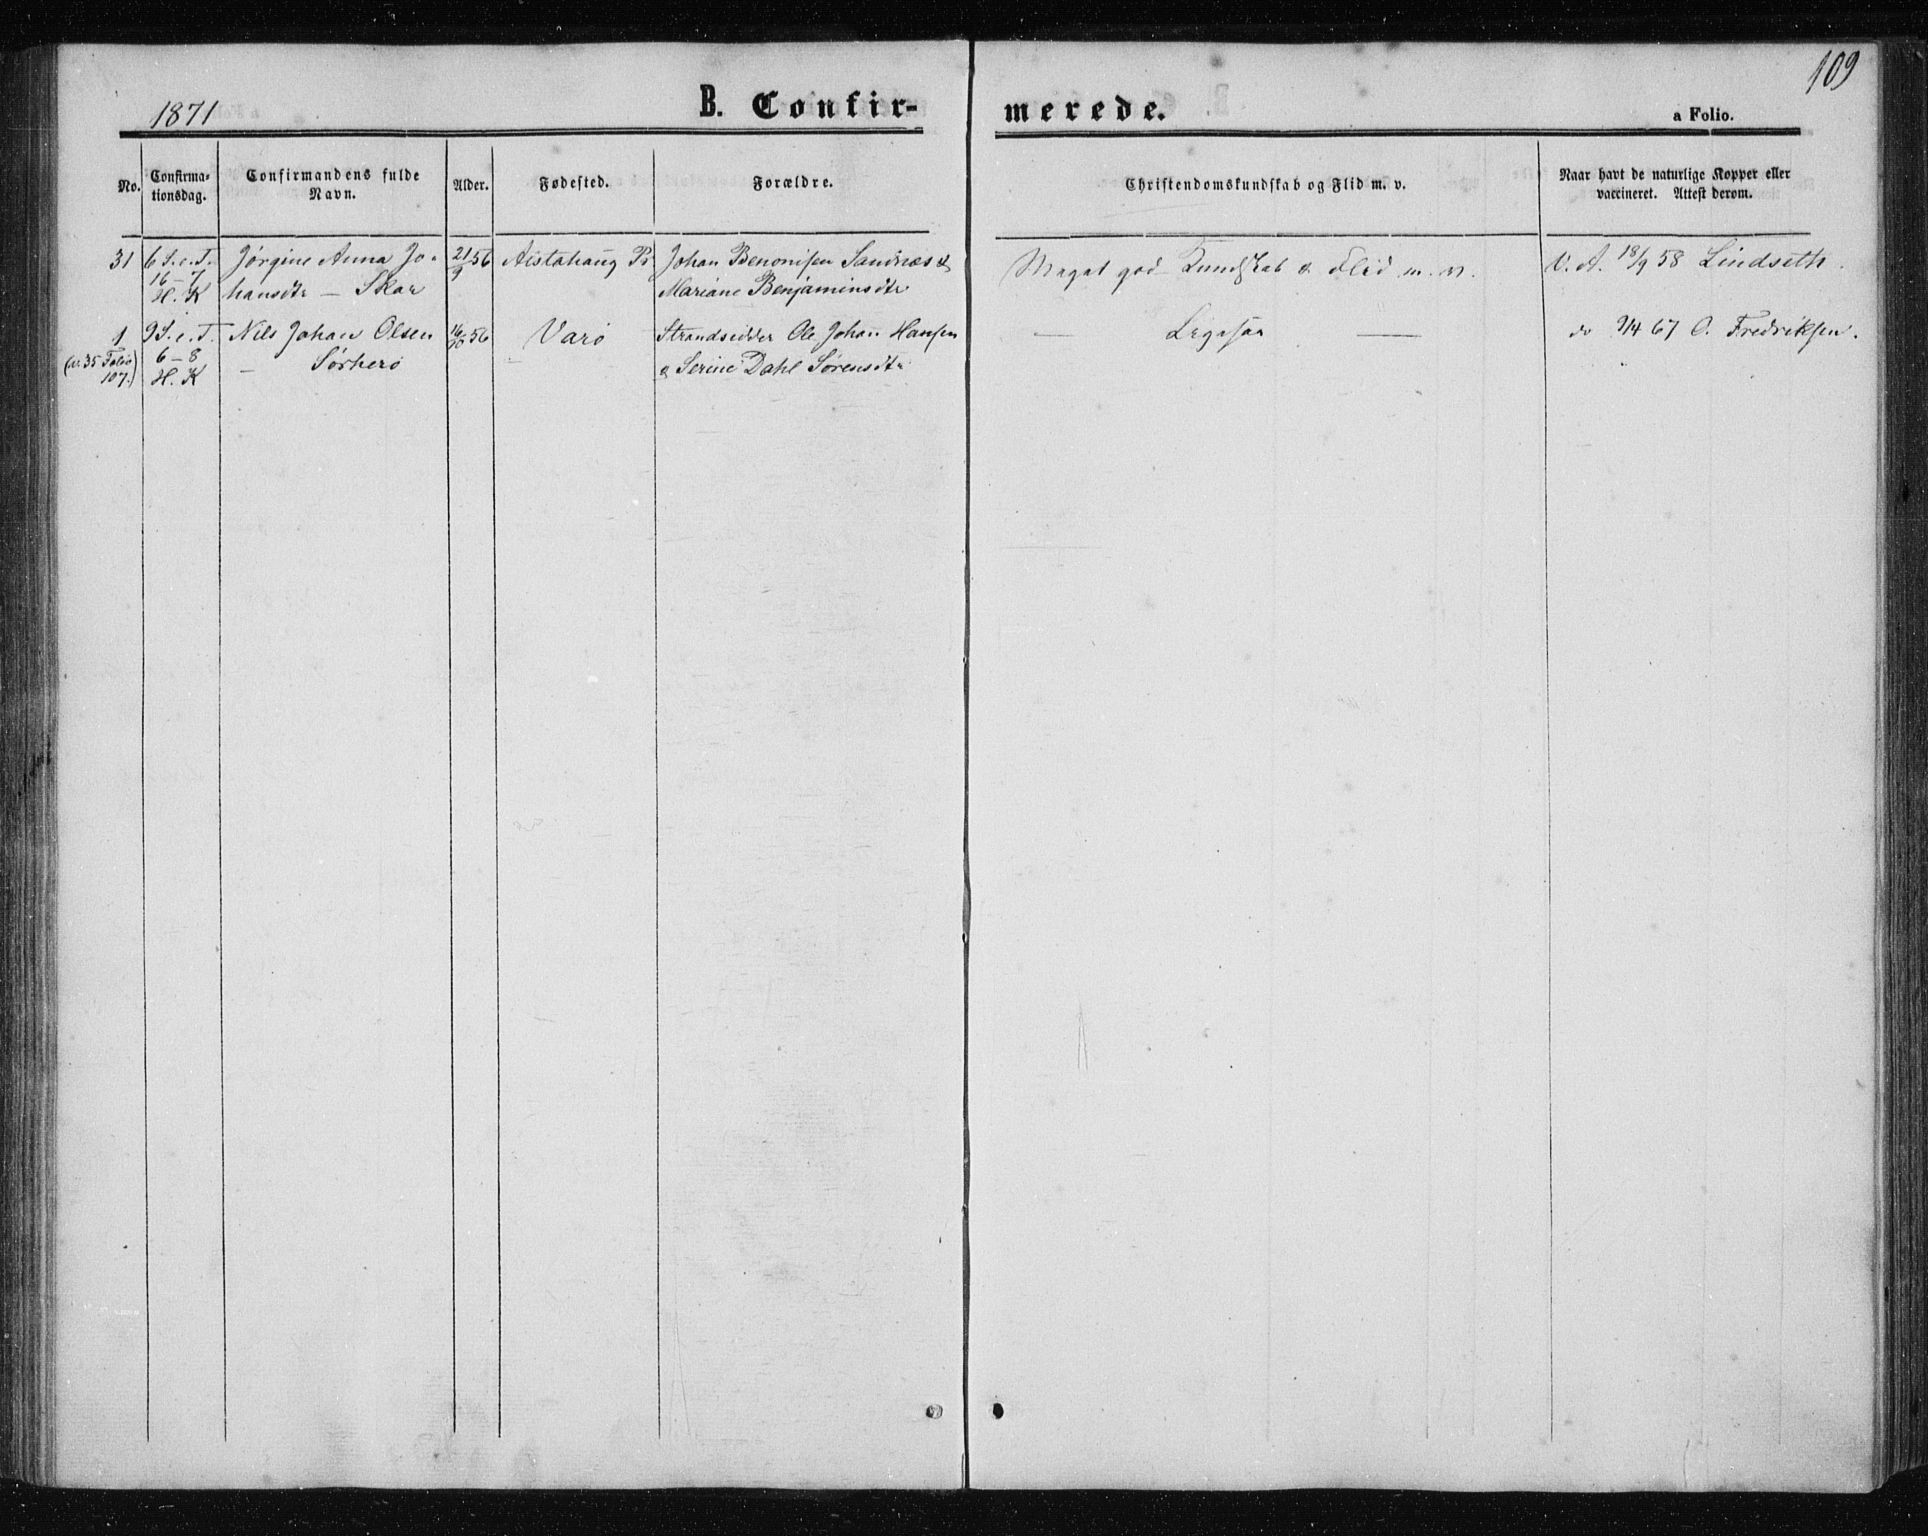 109
1871
B. Confir-
merede.
a Folio.
No.
Confirma-
tionsdag.
Confirmandens fulde
Navn.
Alder.
Fødested.
Forældre.
Christendomskundskab og Flid m. v.
Naar havt de naturlige Kopper eller
vaccineret. Attest derom.
31 6 S. e. T. Jørgine Anna Jo- 21/9 56 Alstahaug Pr Johan Benonisen Sandnæs & Meget god Kundskab & Flid m. v. V. A. 18/9 58 Lindseth.
16-7 hansdtr - Skar Mariane Benjaminsdtr
H. K
1 9 S. e. T. Nils Johan Olsen 56 Varø Strandsidder Ole Johan Hansen — Ligesaa — do 9/4 67 O. Fredriksen.
(cr. 35 Folio 6-8 - Sørherø & Serine Dahl Sørensdtr
107.) H. K